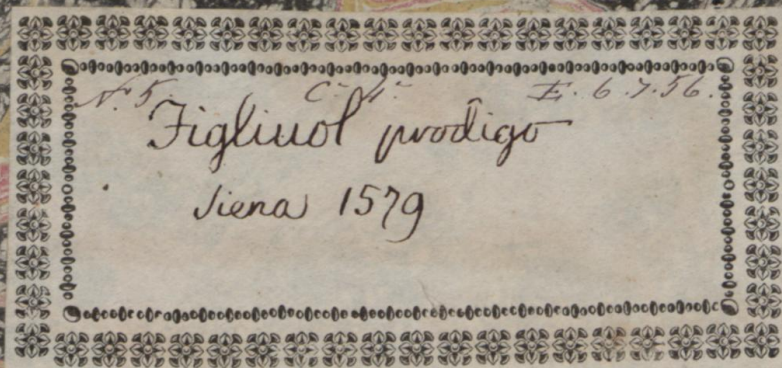 N. 5. C. 1. E. 6. 7. 56.
Figliuol prodigo
Siena 1579